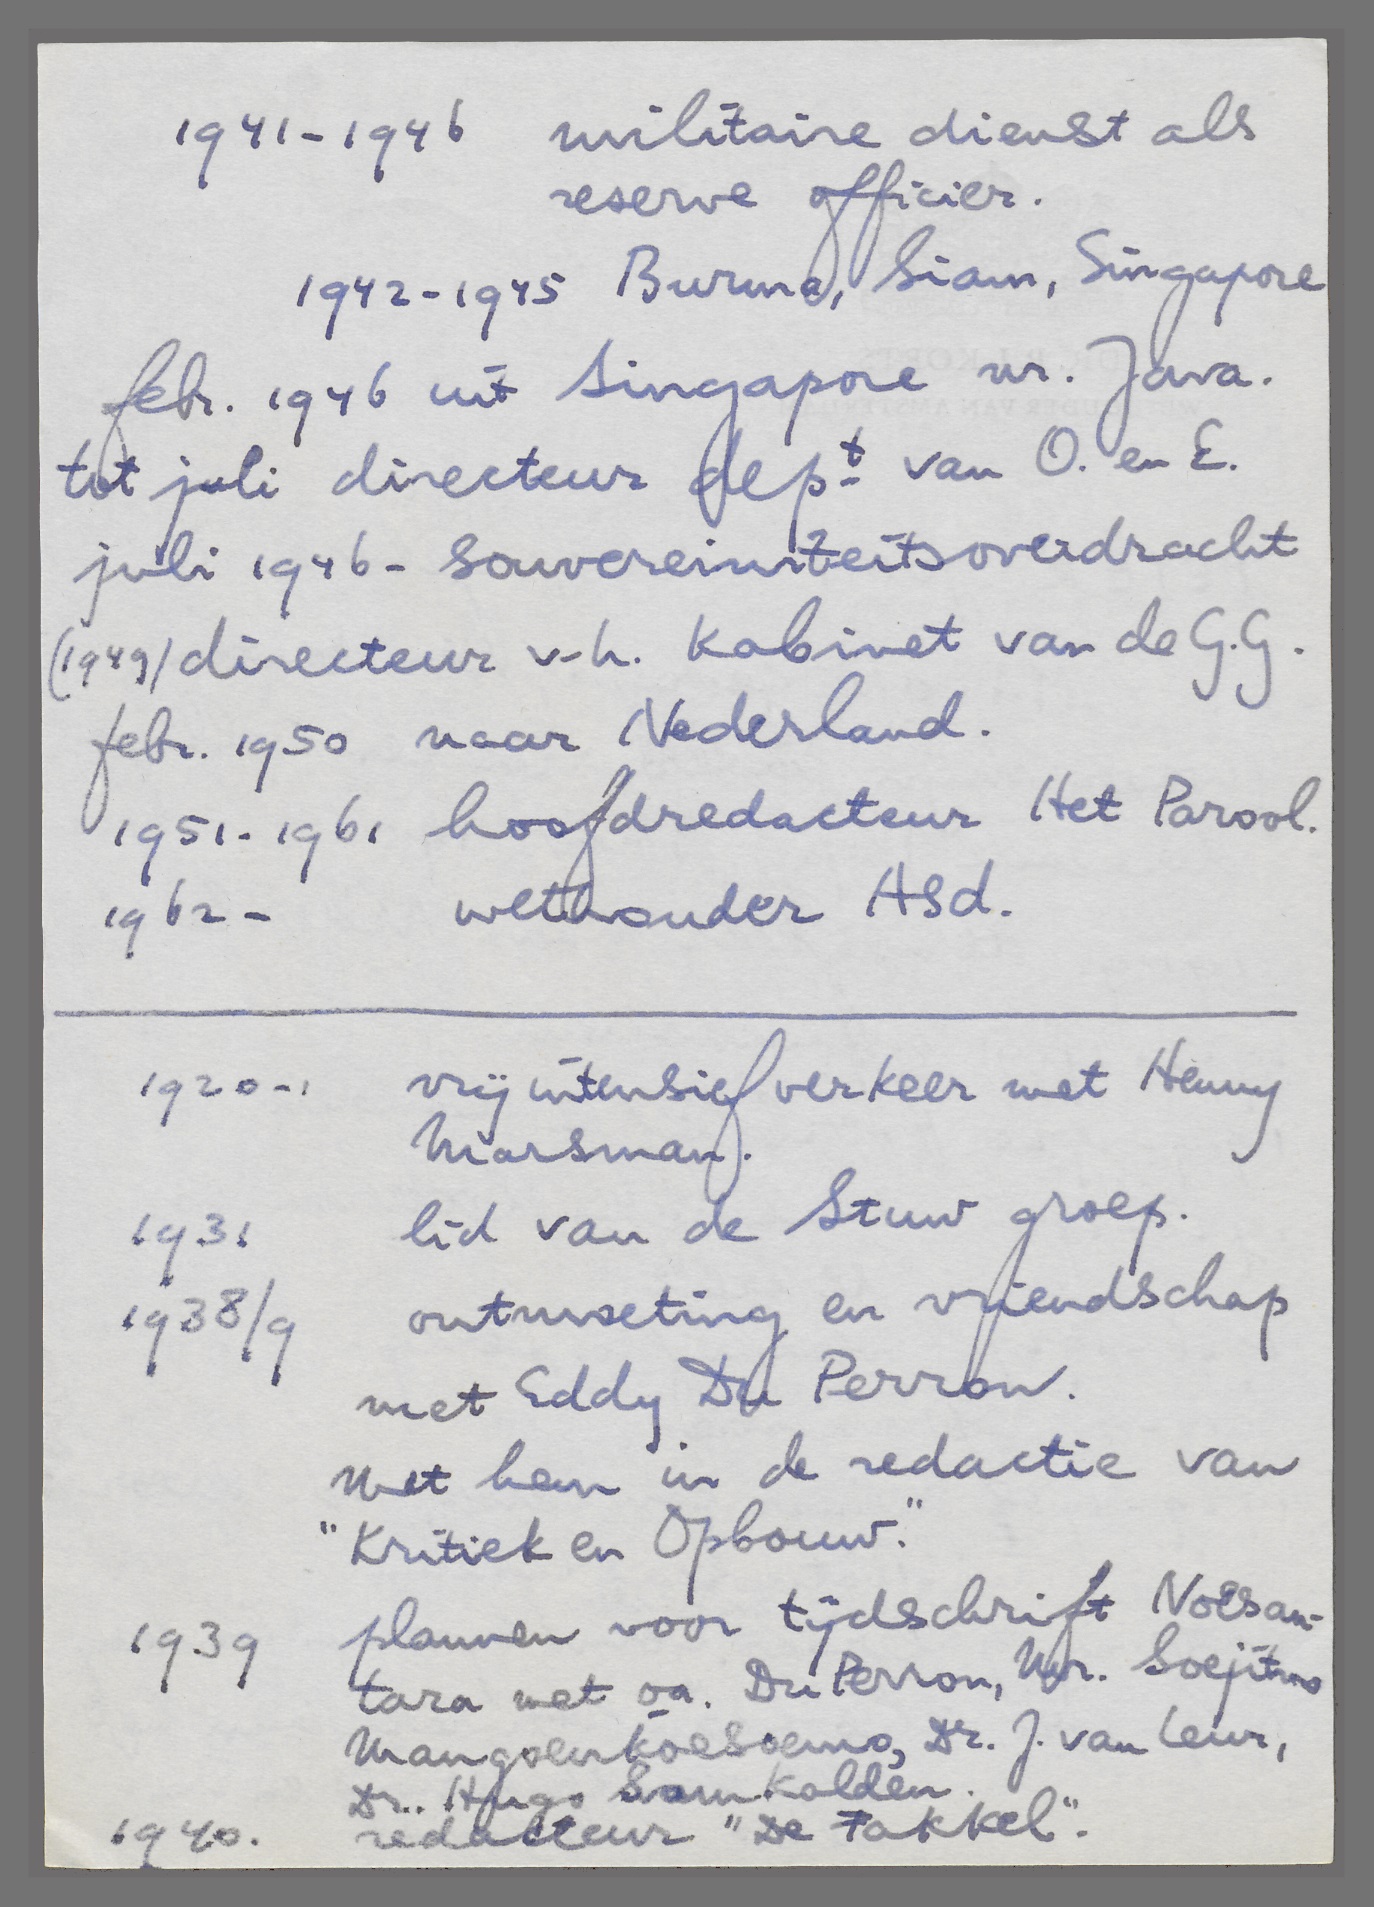 1941-1946 militaire dienst als
reserve officier.
1942-1945 Burma, Siam, Singapore
febr. 1946 uit Singapore nr. Java.
tot juli directeur dept van O. en E.
juli 1946 - souvereiniteitsoverdracht
(1949) directeur v.h. Kabinet van de G.G.
febr. 1950 naar Nederland.
1951-1961 hoofdredacteur Het Parool.
1962- wethouder Asd.
1920-1 vrij intensief verkeer met Henny
Marsman.
1931 lid van de Stuw groep.
1938/9 ontmoeting en vriendschap
met Eddy Du Perron.
Met hem in de redactie van
"Kritiek en Opbouw."
1939 plannen voor tijdschrift Noesan-
tara met oa. Du Perron, Mr. Soejitno
Mangoenkoesoemo, Dr. J. van Leur,
Dr. Hugo Samkalden.
1940. redacteur "De Fakkel".